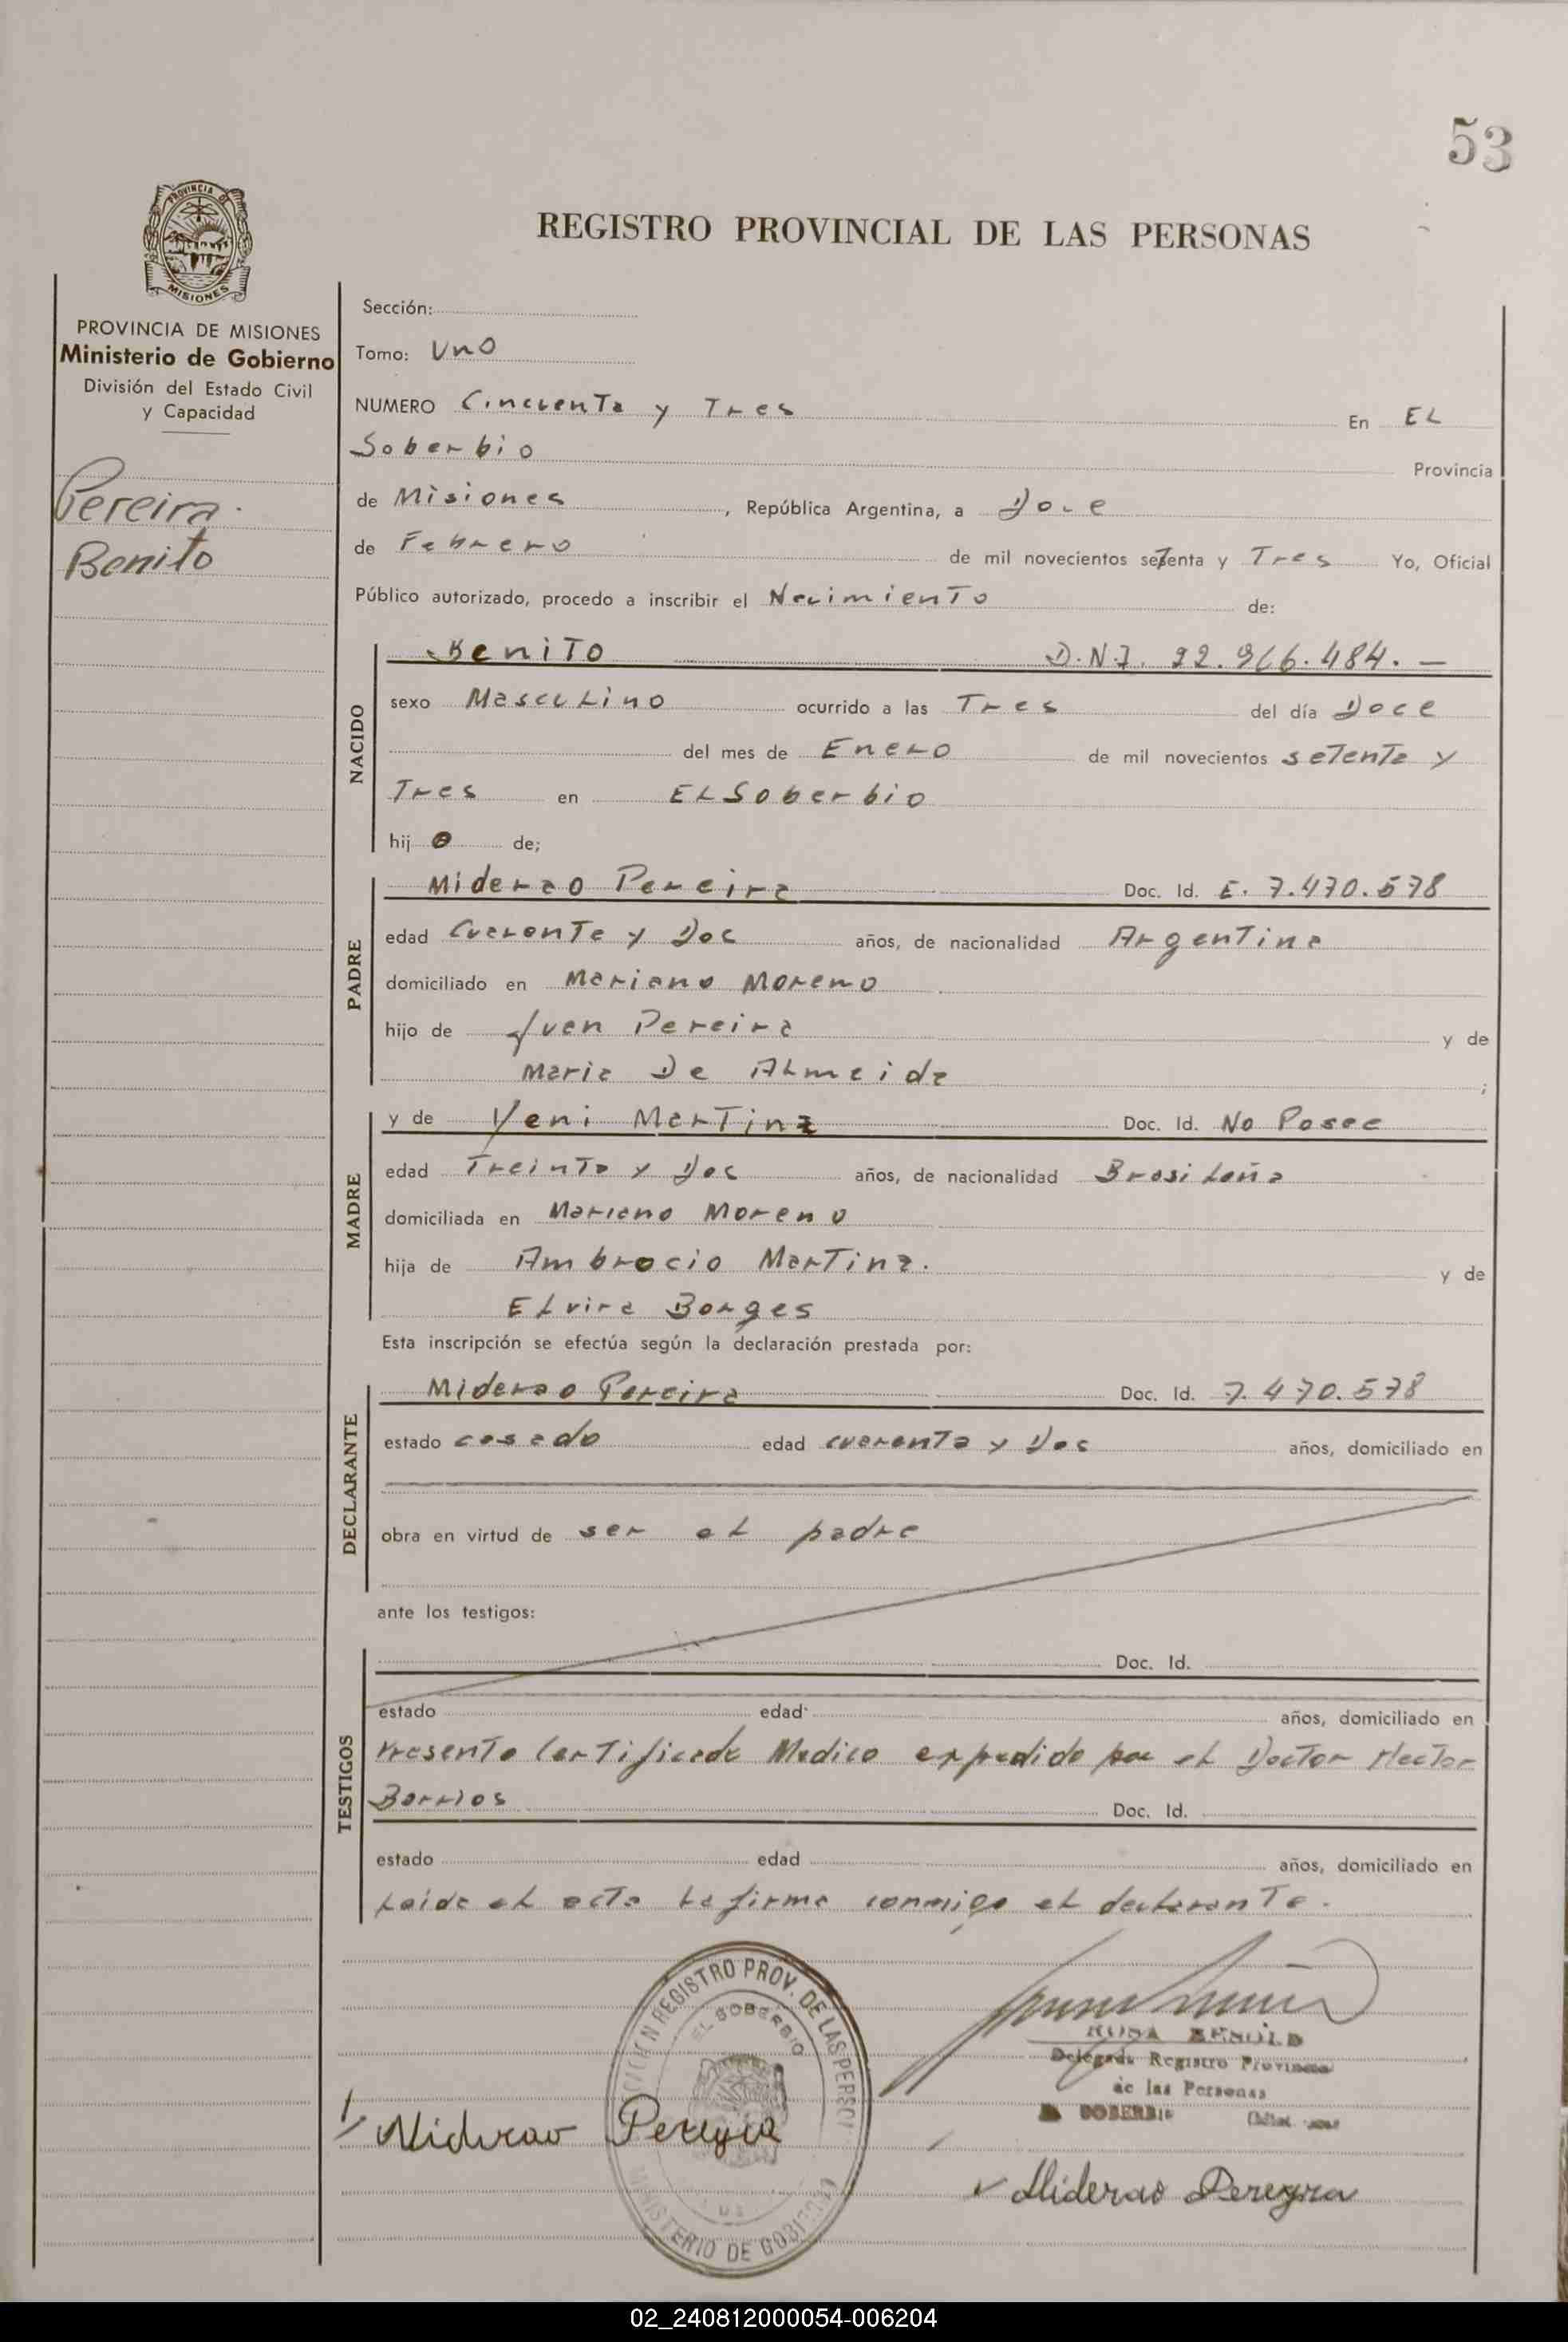 53
PROVINCIA DE
MISIONES
REGISTRO PROVINCIAL DE LAS PERSONAS
PROVINCIA DE MISIONES
Ministerio de Gobierno
División del Estado Civil
y Capacidad
Pereira
Benito
Sección:
Tomo: Uno
NUMERO Cincuenta y Tres En EL
Soberbio Provincia
de Misiones, República Argentina, a Doce
de Febrero de mil novecientos setenta y Tres Yo, Oficial
Público autorizado, procedo a inscribir el Nacimiento de:
NACIDO
Benito D.N.I. 22.966.484.—
sexo Masculino ocurrido a las Tres del día Doce
del mes de Enero de mil novecientos setenta y
Tres en EL Soberbio
hij o de;
PADRE
Miderao Pereira Doc. Id. E. 7.470.578
edad Cuarenta y Dos años, de nacionalidad Argentina
domiciliado en Mariano Moreno
hijo de Juan Pereira y de
Maria De Almeida ;
MADRE
y de Yeni Martinz Doc. Id. No Posee
edad Treinta y Dos años, de nacionalidad Brasileña
domiciliada en Mariano Moreno
hija de Ambrocio Martinz. y de
Elvira Borges
Esta inscripción se efectúa según la declaración prestada por:
DECLARANTE
Miderao Pereira Doc. Id. 7.470.578
estado casado edad cuarenta y Dos años, domiciliado en
obra en virtud de ser el padre
ante los testigos:
TESTIGOS
Doc. Id.
estado edad años, domiciliado en
Presento Certificado Medico expedido por el Doctor Hector
Barrios Doc. Id.
estado edad años, domiciliado en
Leida el acta la firma conmigo el declarante.
REGISTRO PROV. DE LAS PERSO
EL SOBERBIO
MINISTERIO DE GOBIERNO
ROSA
Delegada Registro Provincial
de las Personas
SOBERBIO
Miderao Pereyra
Miderao Pereyra
02_240812000054-006204